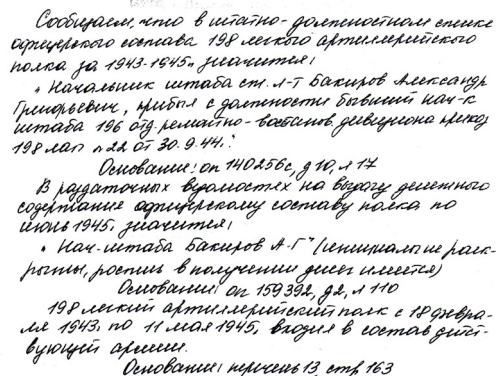 Сообщаем, что в штатно-должностном списке
офицерского состава 198 легкого артиллерийского
полка за 1943-1945г. значится:
"Начальник штаба ст. л-т Бакиров Александр
Григорьевич, прибыл с должности бывший нач-к
штаба 196 отд. ремонтно-востанов. дивизиона приказ
198 лап n 22 от 30.9.44."
Основание: оп 140256с, д 10, л 17
В раздаточных ведомостях на выдачу денежного
содержания офицерскому составу полка по
июнь 1945г. значится:
"Нач. штаба Бакиров А-Г" (инициалы не раск-
рыты, роспись в получении денег имеется)
Основание: оп 159392, д 2, л 110
198 легкий артиллерийский полк с 18 февра-
ля 1943г. по 11 мая 1945г. входил в состав дейст-
вующей армии.
Основание: перечень 13. стр 163